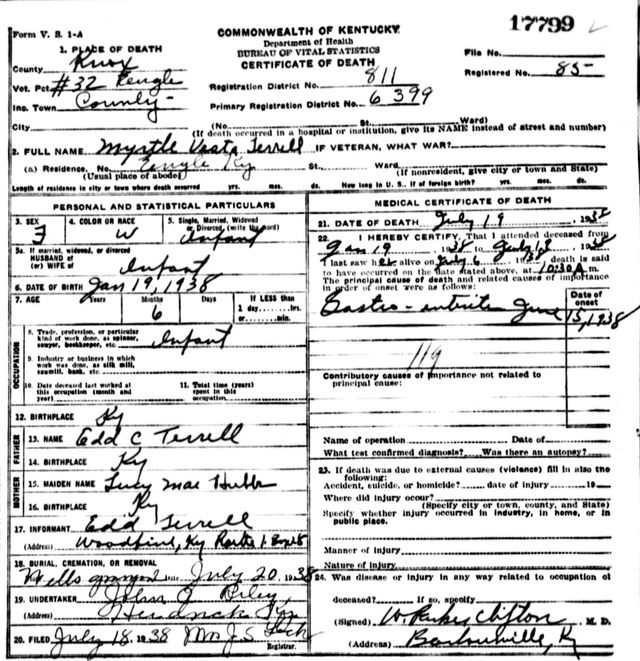 Form V. S. 1-A
COMMONWEALTH OF KENTUCKY
17799
Department of Health
BUREAU OF VITAL STATISTICS
CERTIFICATE OF DEATH
1. PLACE OF DEATH
County Knox
Vot. Pct #32 Kengle
Inc. Town County
File No.
Registered No. 85
Registration District No. 811
Primary Registration District No. 6399
City (No. St. Ward)
(If death occurred in a hospital or institution, give its NAME instead of street and number)
2. FULL NAME Myrtle Terrell IF VETERAN, WHAT WAR?
(a) Residence. No. Ky St. Ward
(Usual place of abode) (If nonresident, give city or town and State)
Length of residence in city or town where death occurred yrs. mos. ds. How long in U. S., if of foreign birth? yrs. mos. ds.
PERSONAL AND STATISTICAL PARTICULARS
3. SEX
F
4. COLOR OR RACE
W
5. Single, Married, Widowed or Divorced, (write the word)
Infant
5a. If married, widowed, or divorced
HUSBAND of
(or) WIFE of Infant
6. DATE OF BIRTH Jan 19, 1938
7. AGE Years Months Days If LESS than
6 1 day----hrs.
or------min.
OCCUPATION
8. Trade, profession, or particular kind of work done, as spinner, sawyer, bookkeeper, etc. Infant
9. Industry or business in which work was done, as silk mill, sawmill, bank, etc.
10. Date deceased last worked at this occupation (month and year)
11. Total time (years) spent in this occupation
12. BIRTHPLACE Ky
FATHER
13. NAME Edd C Terrell
14. BIRTHPLACE Ky
MOTHER
15. MAIDEN NAME Lucy Mae
16. BIRTHPLACE Ky
17. INFORMANT Edd Terrell
(Address) Woodbine, Ky Route 1
18. BURIAL, CREMATION, OR REMOVAL
Date July 20 1938
19. UNDERTAKER John Riley
(Address) Ky
20. FILED July 18 1938 Mrs J S
Registrar.
MEDICAL CERTIFICATE OF DEATH
21. DATE OF DEATH July 19, 1938
22. I HEREBY CERTIFY, That I attended deceased from
Jan 19 1938 to July 1938
I last saw her alive on July 6 1938 death is said
to have occurred on the date stated above, at 10:30A m.
The principal cause of death and related causes of importance
in order of onset were as follows:
Date of onset
Gastro-enteritis June 15, 1938
119
Contributory causes of importance not related to principal cause:
Name of operation Date of
What test confirmed diagnosis? Was there an autopsy?
23. If death was due to external causes (violence) fill in also the following:
Accident, suicide, or homicide? date of injury 19
Where did injury occur?
(Specify city or town, county, and State)
Specify whether injury occurred in industry, in home, or in public place.
Manner of injury
Nature of injury
24. Was disease or injury in any way related to occupation of
deceased? If so, specify
(Signed) W. Parker Clifton M. D.
(Address) Barbourville, Ky